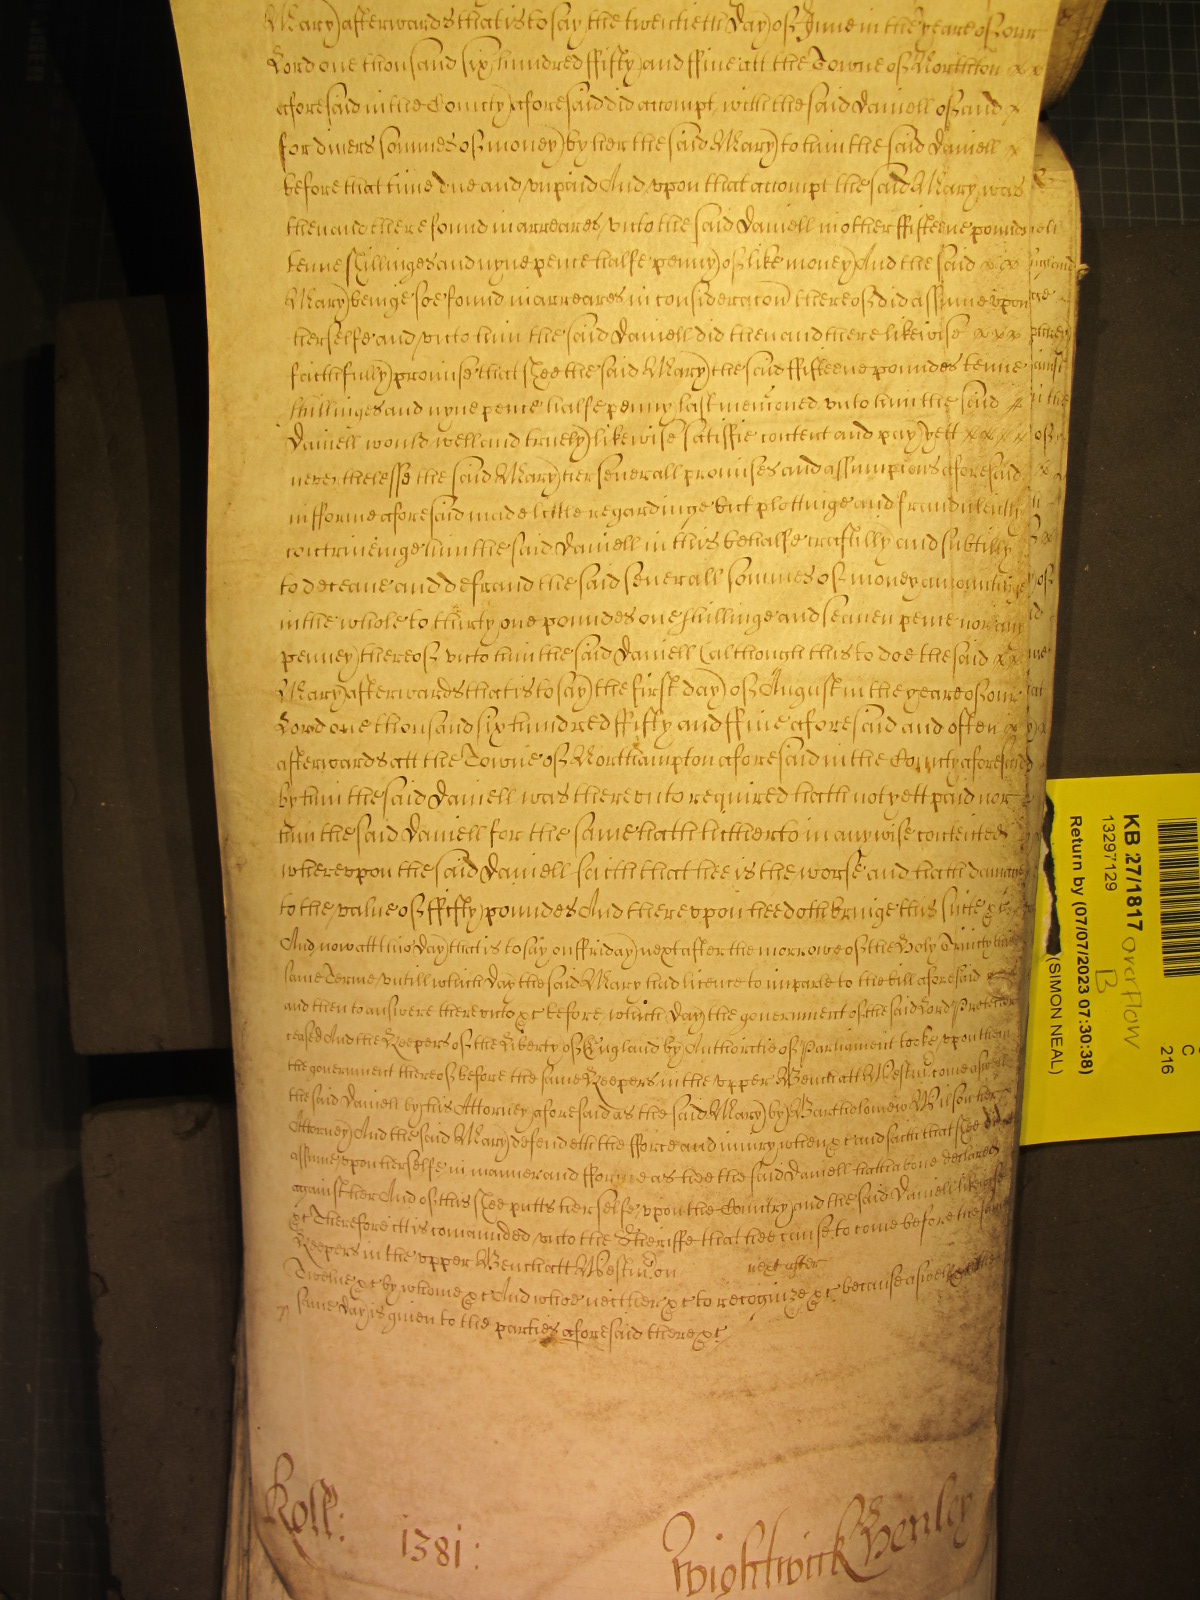 Mary) afterwards that is to say the twentieth day of June in the yeare of our
Lord one thousand six hundred ffifty and ffive att the Towne of Northton x x
aforesaid in the County aforesaid did accompt with the said Daniell of and x
for divers sommes of money by her the said Mary to him the said Daniell x
before that time due and vnpaid And vpon that accompt the said Mary was
then and there found in arreares vnto the said Daniell in other ffifteene pounds
tenne shillinges and nyne pence halfe penny of like money And the said x x x
Mary beinge soe found in arreares in consideracon thereof did assume vpon
herselfe and vnto him the said Daniell did then and there likewise x x x
faithfully promise that shee the said Mary the said ffifteene poundes tenne
shillinges and nyne pence halfe penny last mencioned vnto him the said x
Daniell would well and truely likewise satisfie content and pay yett x x x x
neverthelesse the said Mary her severall promises and assumpcions aforesaid
in fforme aforesaid made little regardinge but plottinge and fraudulently
contriveinge him the said Daniell in this behalfe craftilly and subtilly
to deceave and defraud the said severall sommes of money amountinge
in the whole to thirty one poundes one shillinge and seaven pence nor any
penney thereof vnto him the said Daniell (although this to doe the said x x
Mary afterwards that is to say the first day of August in the yeare of our
Lord one thousand six hundred ffifty and ffive aforesaid and often x
afterwards att the Towne of Northampton aforesaid in the County aforesaid
by him the said Daniell was therevnto required hath not yett paid nor
him the said Daniell for the same hath hitherto in any wise contented
wherevpon the said Daniell saith that hee is the worse and hath damage
to the value of ffifty poundes And therevpon hee doth bringe this suite &c
And now att this day that is to say on ffriday next after the morrowe of the Holy Trinity this
same Terme vntill which day the said Mary had licence to imparle to the bill aforesaid
and then to answere therevnto &c before which day the government of the said Lord Protector
ceased And the Keepers of the Liberty of England by Authoritie of Parliament tooke vpon them
the government thereof before the same Keepers in the vpper Bench att Westm come aswell
the said Daniell by his Attorney aforesaid as the said Mary by Bartholomew Wilson her
Attorney And the said Mary defendeth the fforce and iniury when &c and saith that shee did not
assume vpon herselfe in manner and fforme as hee the said Daniell hath above declared
against her And of this shee putts herselfe vpon the Country and the said Daniell likewise
&c Therefore itt is comaunded vnto the Sheriffe that hee cause to come before the same
Keepers in the vpper Bench att Westm on next after
Twelve &c by whome &c And whoe neither &c to recognize &c because aswell &c the
same day is given to the parties aforesaid there &c
Roll: 1381: Wightwick Henley
KB 27/1817 overflow
13297129 B
Return by (07/07/2023 07:30:38)
(SIMON NEAL)
C
216